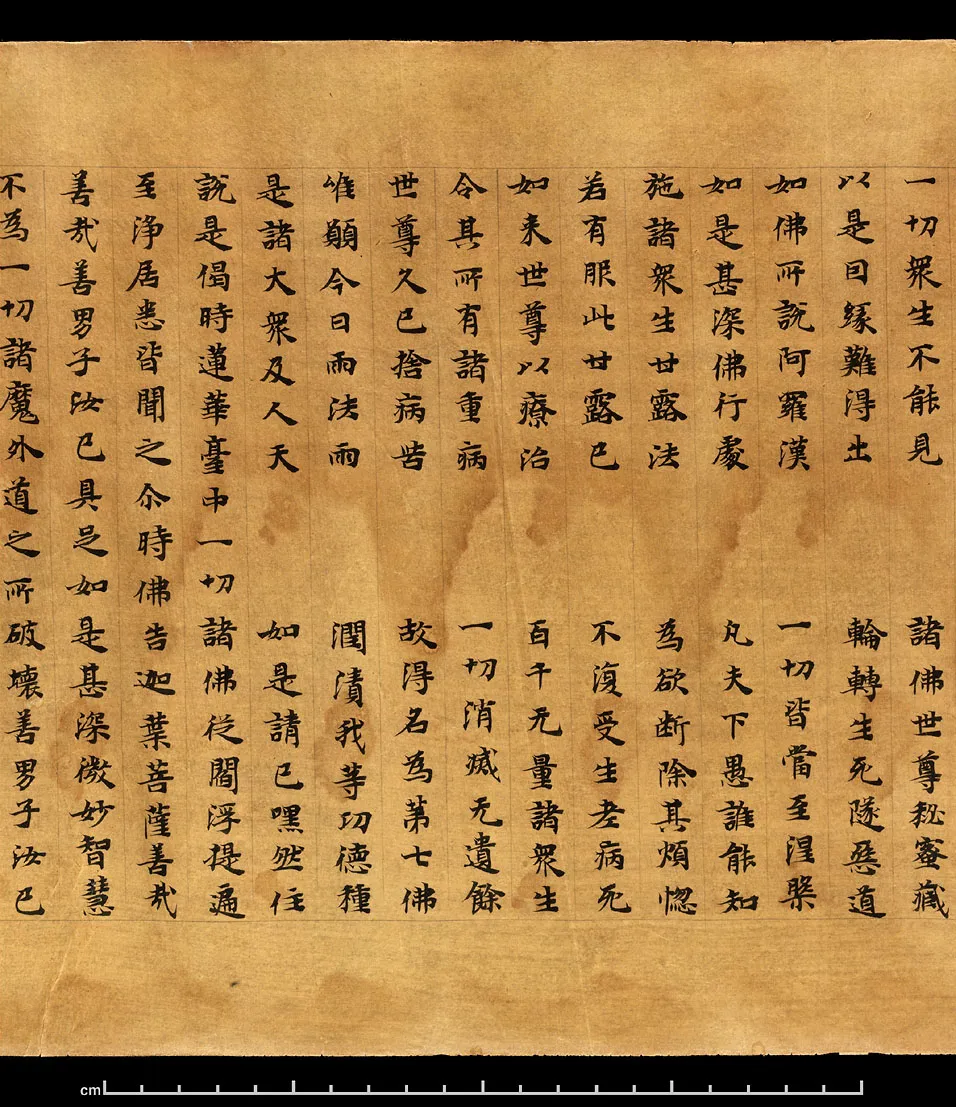 一切衆生不能見　諸佛世尊秘蜜蔵
以是曰縁難得出　輪轉生死隧惡道
如佛所說阿羅漢　一切皆當至涅槃
如是甚深佛行處　凡夫下愚誰能知
施諸衆生甘露法　為欲断除其煩惚
若有服此甘露已　不復受生老病死
如来世尊以療治　百千无量諸衆生
令其所有諸重病　一切消滅无遺餘
世尊久已捨病苦　故得名為苐七佛
唯願今日雨法雨　潤漬我等功德種
是諸大衆及人天　如是請已嘿然住
說是偈時蓮華臺中一切諸佛従閻浮提遍
至浄居悉皆聞之尒時佛告迦葉菩薩善哉
善哉善男子汝已具足如是甚深微妙智慧
不為一切諸魔外道之所破壊善男子汝已
cm